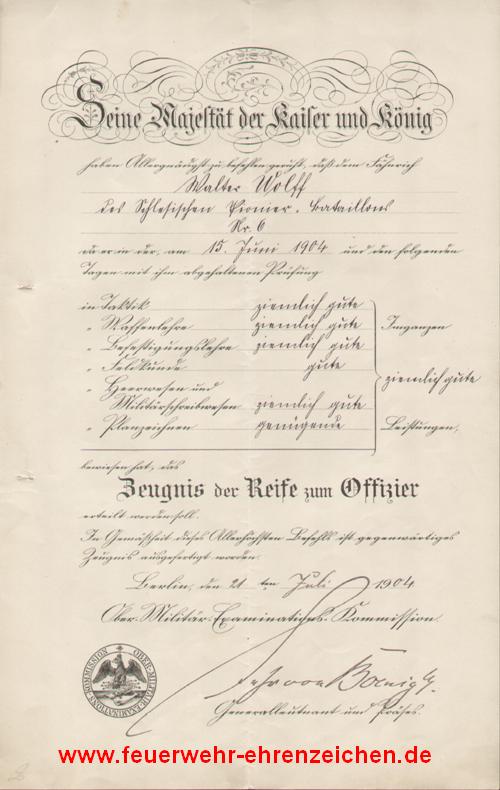 Seine Majestät der Kaiser und König
haben Allergnädigst zu befehlen geruht, daß dem Fähnrich
Walter Wolff
des Schlesischen Pionier-Bataillons
Nr. 6
da er in der, am 15. Juni 1904 und den folgenden
Tagen mit ihm abgehaltenen Prüfung
in Taktik ziemlich gute
" Waffenlehre ziemlich gute Imganzen
" Befestigungslehre ziemlich gute
" Feldkunde gute
" Heerwesen und ziemlich gute
Militärschreibwesen ziemlich gute
" Planzeichnen genügende Leistungen,
bewiesen hat, das
Zeugnis der Reife zum Offizier
erteilt werden soll.
In Gemäßheit dieses Allerhöchsten Befehls ist gegenwärtiges
Zeugnis ausgefertigt worden.
Berlin, den 21ten Juli 1904
Ober-Militär-Examinations-Kommission.
Generalleutnant und Präses.
OBER-MILITAIR-EXAMINATIONS-KOMMISSION
www.feuerwehr-ehrenzeichen.de